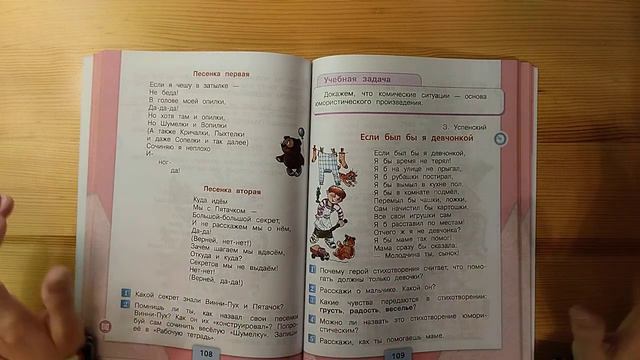 Песенка первая
Если я чешу в затылке —
Не беда!
В голове моей опилки,
Да-да-да!
Но хотя там и опилки,
Но Шумелки и Вопилки
(А также Кричалки, Пыхтелки
и даже Сопелки и так далее)
Сочиняю я неплохо
И-
ног-
да!
Песенка вторая
Куда идём
Мы с Пятачком —
Большой-большой секрет,
И не расскажем мы о нём,
Да-да!
(Верней, нет-нет!)
Зачем шагаем мы вдвоём,
Откуда и куда?
Секретов мы не выдаём!
Нет-нет!
(Верней, да-да!)
1 Какой секрет знали Винни-Пух и Пятачок?
2 Помнишь ли ты, как назвал свои песенки
Винни-Пух? Как он их «конструировал»? Попро-
буй сам сочинить весёлую «Шумелку». Запиши
её в «Рабочую тетрадь».
108
Учебная задача
Докажем, что комические ситуации — основа
юмористического произведения.
Э. Успенский
Если был бы я девчонкой
Если был бы я девчонкой,
Я бы время не терял!
Я б на улице не прыгал,
Я б рубашки постирал,
Я бы вымыл в кухне пол,
Я бы в комнате подмёл,
Перемыл бы чашки, ложки,
Сам начистил бы картошки,
Все свои игрушки сам
Я б расставил по местам!
Отчего ж я не девчонка?
Я бы маме так помог!
Мама сразу бы сказала:
Молодчина ты, сынок!
1 Почему герой стихотворения считает, что помо-
гать должны только девочки?
2 Расскажи о мальчике. Какой он?
3 Какие чувства передаются в стихотворении:
грусть, радость, веселье?
4 Можно ли назвать это стихотворение юмори-
стическим?
5 Расскажи, как ты помогаешь маме.
109